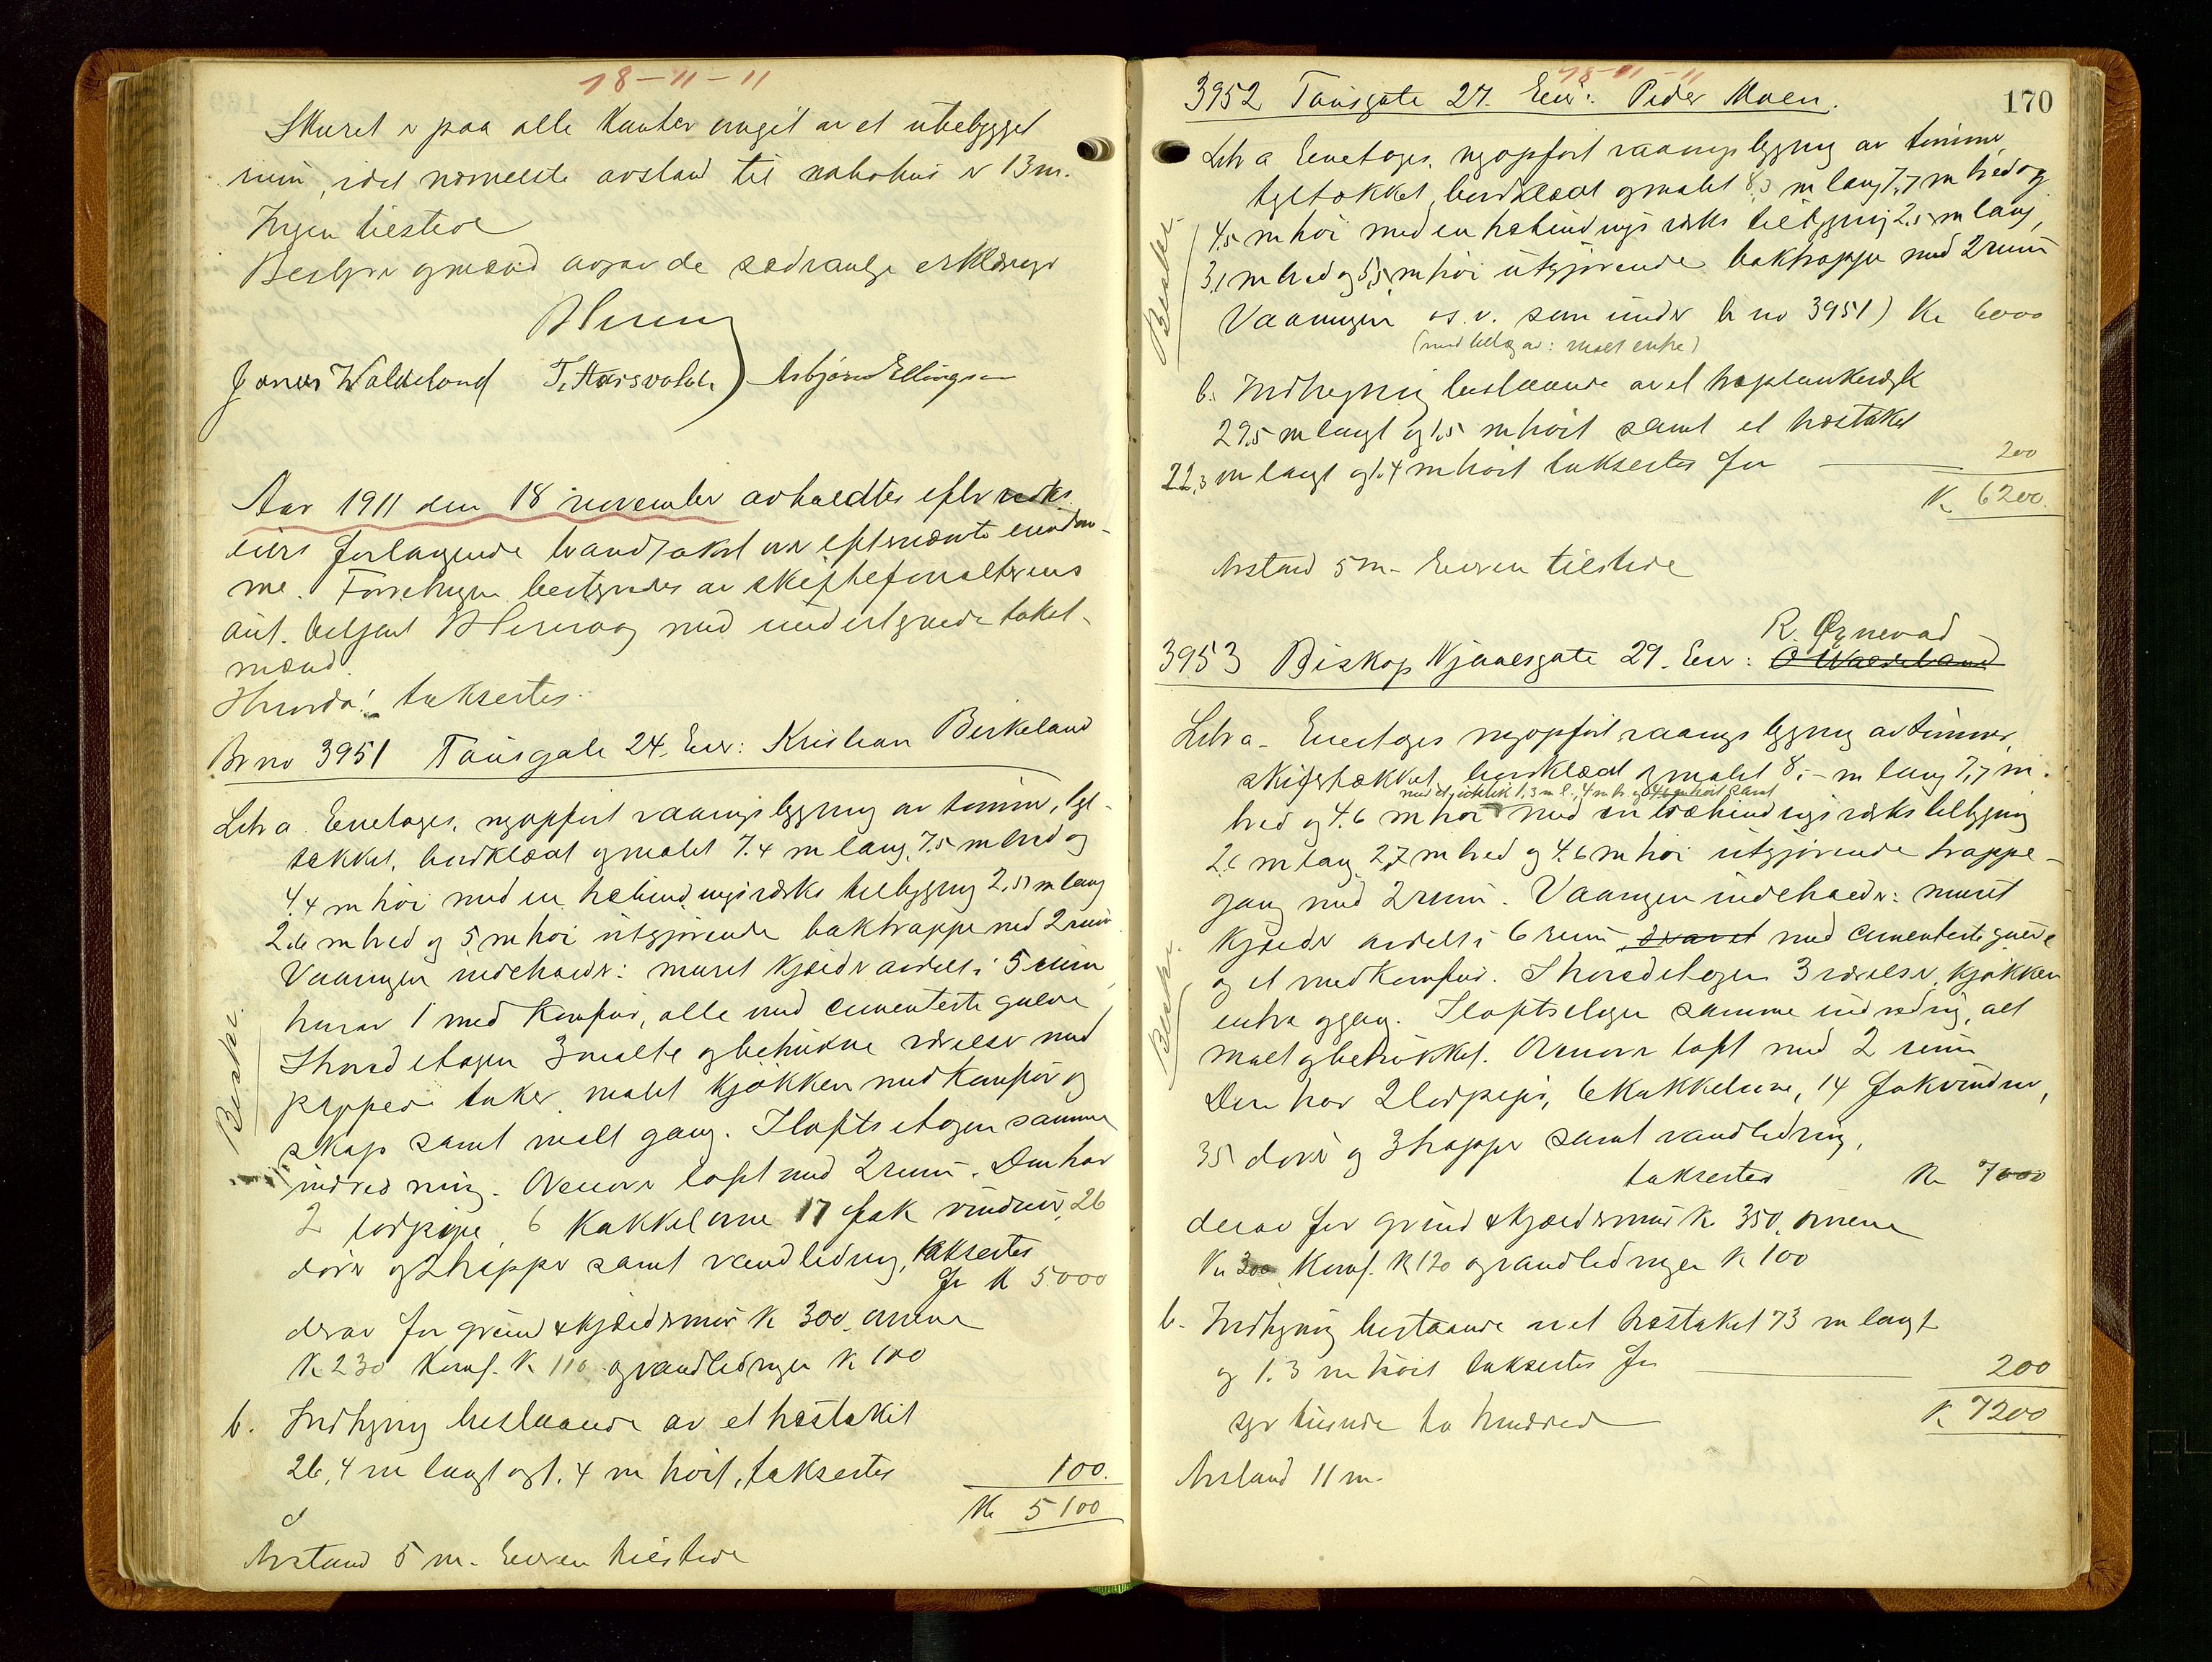 18-11-11
Skuret er paa alle kanter omgit av et ubebygget
rum, idet nærmeste avstand til nabohus er 13 m.
Ingen tilstede
Bestyrer og mænd avgav de sædvanlige erklæringer
Jonas Waldeland T. Aarsvold Asbjørn Ellingsen
Aar 1911 den 18 november avholdtes efter vedk.
eiers forlangende brandtakst over efternævnte eiendom-
me. Forretningen bestyredes av skifteforvalterens
aut. betjent med undertegnede takst-
mænd.
Herunder taksertes:
Br no 3951 Tausgate 24. Eier: Kristian Birkeland
Litr a. Enetages, nyopført vaaningsbygning av tømmer, tgl-
tækket, bordklædt og malet 7.4 m lang, 7.5 m bred og
4.4 m høi med en træbindingsverks tilbygning 2.5 m lang
2.6 m bred og 5 m høi utgjørende baktrappe med 2 rum
Vaaningen indeholder: muret kjælder avdelt i 5 rum,
hvorav 1 med komfur, alle med cementerte gulve
I hovedetagen 3 malte og betrukne værelser med
pappede taker, malet kjøkken med komfur og
skap samt malt gang. I loftsetagen samme
indredning. Ovenover loft med 2 rum. Den har
2 lodpiper, 6 kakkelovne 17 fak vinduer, 26
dører og 2 trapper samt vandledning, taksertes
for K 5000
derav for grund & kjældermur K 300, ovnene
K 230 Komf. K 110 og vandledningen K 100
b. Indhegning bestaaende av et træstakit
26,4 m langt og 1.4 m høit, taksertes 100.
Kr 5100
Avstand 5 m. Eieren tilstede
Beskr.
18-11-11
170
3952 Tausgate 27. Eier: Peder Moen.
Litr a Enetages, nyopført vaaningsbygning av tømmer,
tgltækket, bordklædt og malet 8.3 m lang 7,7 m bred og
4,5 m høi med en træbindingsverks tilbygning 2,5 m lang,
3,1 m bred og 5,5 m høi utgjørende baktrappe med 2 rum
Vaaningen o.s.v. som under br no 3951) Kr 6000
(med tillæg av: malt entre)
b. Indhegning bestaaende av et træplankeværk
29,5 m langt og 1,5 m høit samt et træstakit
22,3 m langt og 1.4 m høit taksertes for 200
K 6200.
Avstand 5 m. Eieren tilstede
Beskr.
R. Øgnevad
3953 Biskop Njaalsgate 29. Eier: O Waldeland
Litr a. Enetages nyopført vaaningsbygning av tømmer,
skifertækket, bordklædt og malet 8,- m lang 7,7 m.
bred og 4.6 m høi med en træbindingsverks tilbygning
2,6 m lang 2,7 m bred og 4.6 m høi utgjørende trappe-
gang med 2 rum. Vaaningen indeholder: muret
kjælder avdelt i 6 rum, hvorav med cementerte gulve
og et med komfur. I hovedetagen 3 værelser, kjøkken
entre og gang. I loftsetagen samme indredning, alt
malt og betrukket. Ovenover loft med 2 rum
Den har 2 lodpiper, 6 kakkelovne, 14 fakvinduer,
35 dører og 3 trapper samt vandledning,
taksertes Kr 7000
derav for grund & kjældermur K 350, ovnene
Kr 300 Komf. K 120 og vandledningen K 100
b. Indhegning bestaaende av et træstakit 73 m langt
og 1.3 m høit taksertes for 200
syv tusinde to hundrede K 7200
Avstand 11 m.
Beskr.